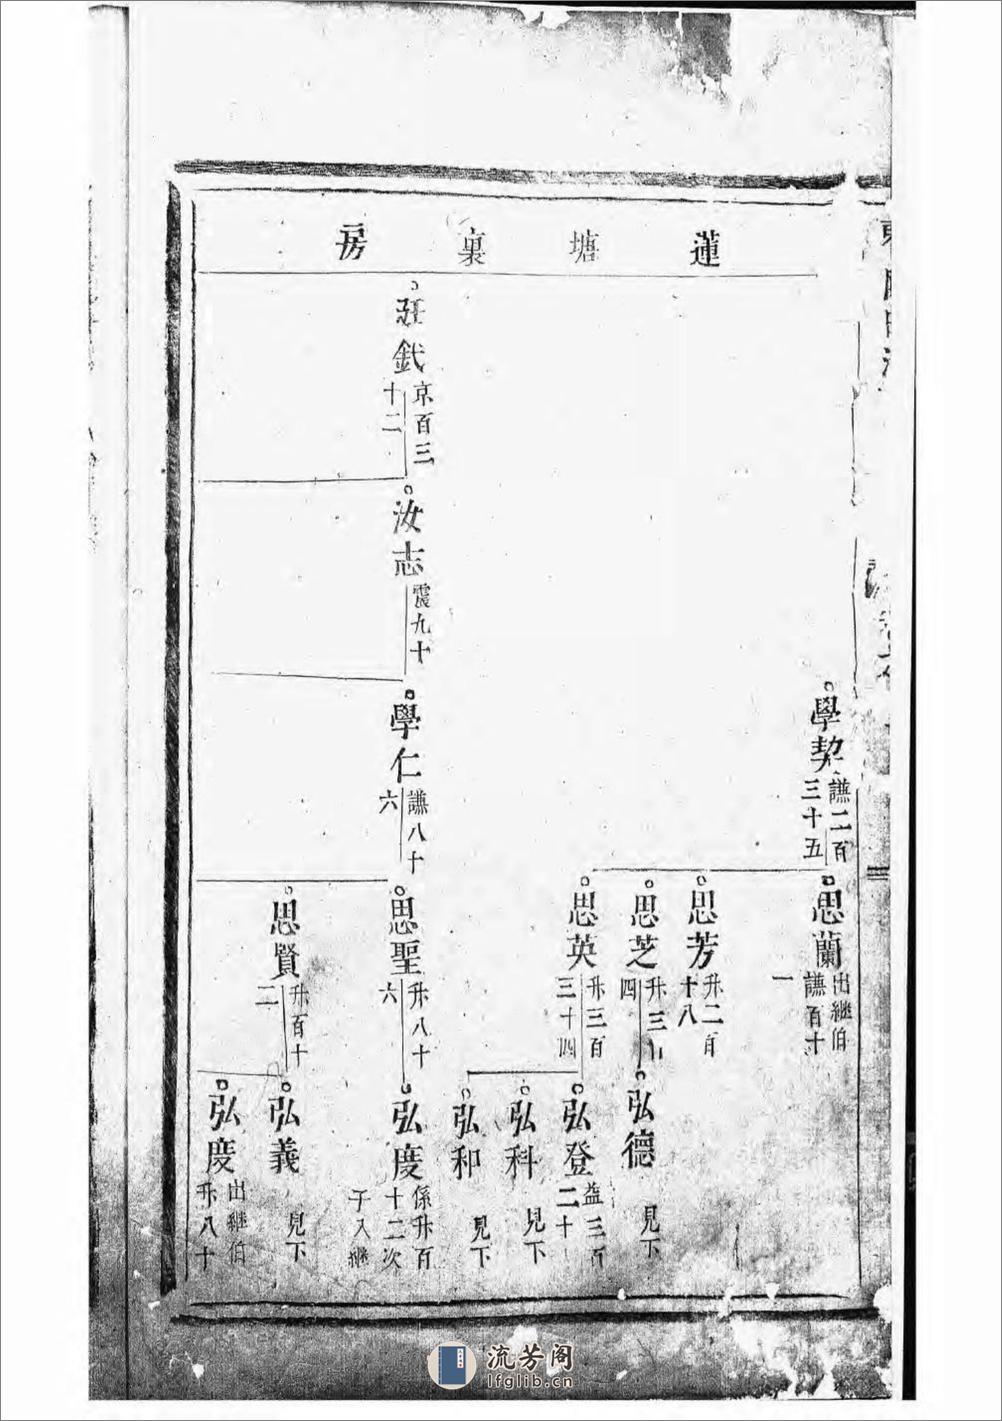 蓮塘裏房
學契 謙二百三十五
思蘭 出繼伯謙百十一
思芳 升二百十八
思芝 升三百四
弘德 見下
思英 升三百三十四
弘登 益三百二十
弘科 見下
弘和 見下
鈛 京百三十二
汝志 震九十
學仁 謙八十六
思聖 升八十六
弘度 係升百十二次子入繼
思賢 升百十二
弘義 見下
弘度 出繼伯升八十
流芳阁
lfglib.cn